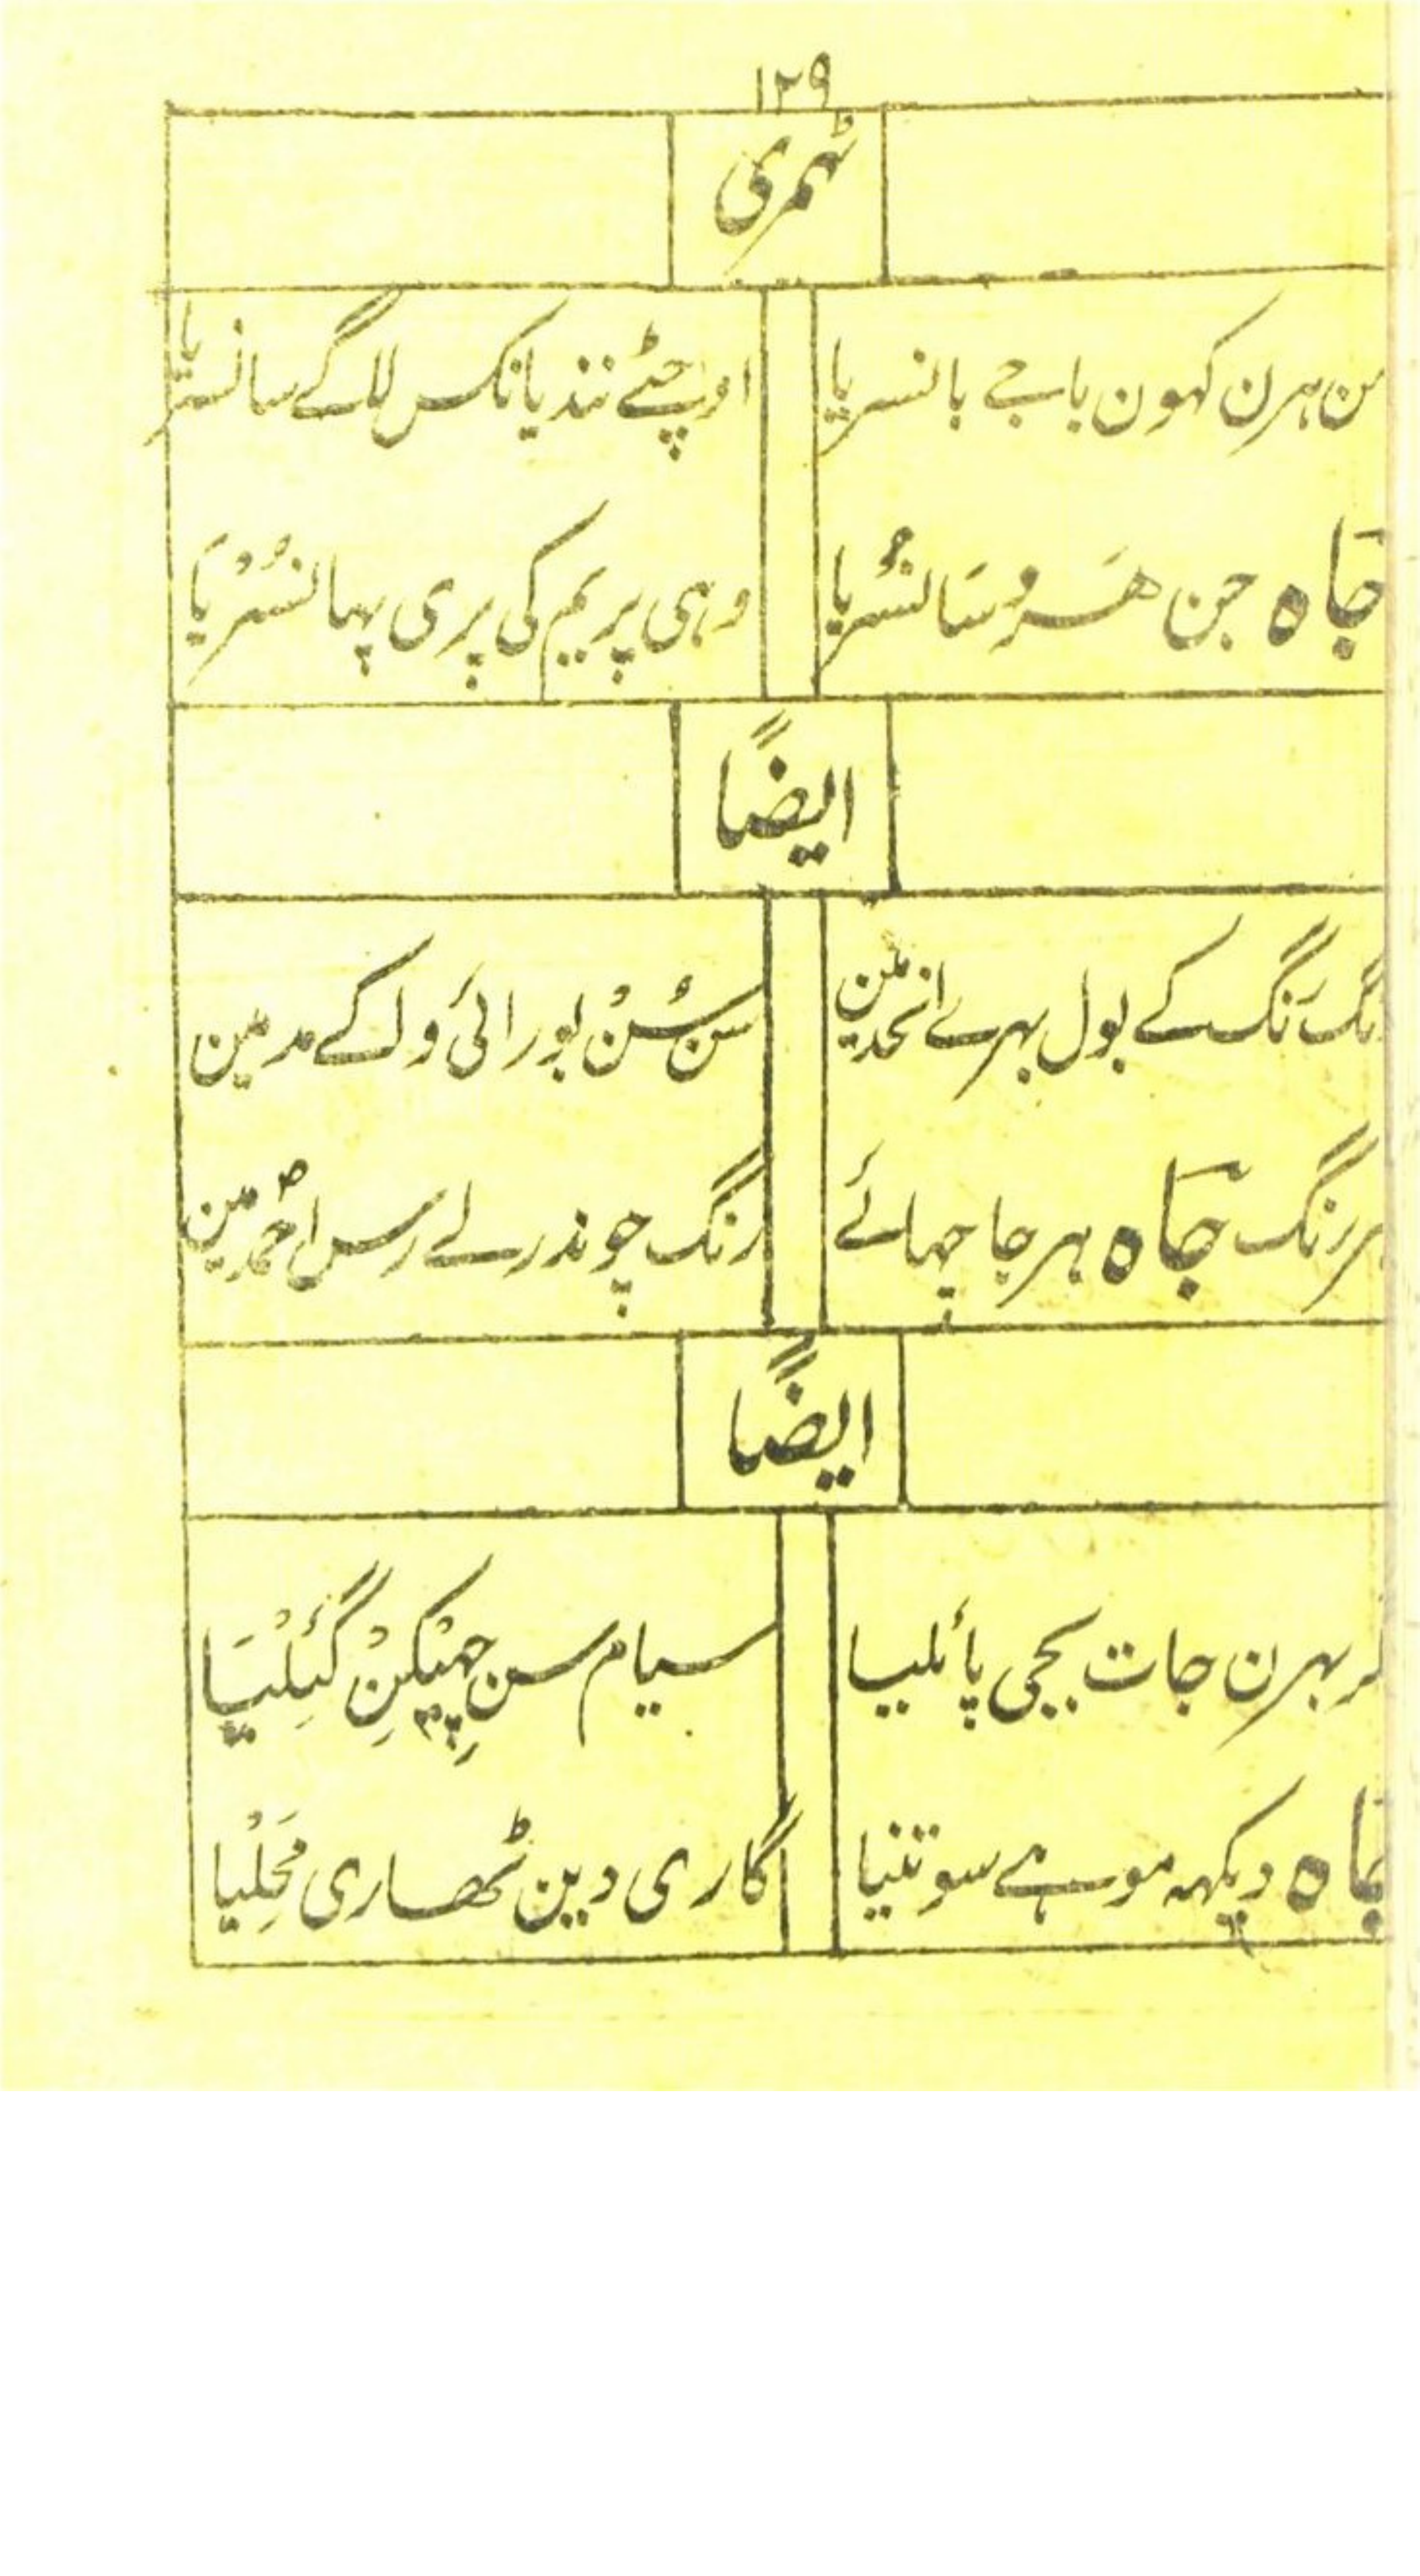 ۱۲۹
ٹھمری
من ہرن کہون باجے بانسریا اوچٹے نندیا نکس لاگے سانسریا
چاہ جن ھَروسَانسُریا وہی پریم کی پری پہانسُرْیَا
ایضًا
رنگ کے بول بہرے انحدمین سن سُنْ بورائی ولکے مدمین
ہر رنگ چاہ ہر جا چہائے رنگ چوندر لے رس احمد مین
ایضًا
بہرن جات بجی پائلیا سیام سن چِمْپکِنْ گَئِلْیَا
چاہ دیکہہ موہے سوتنیا گاری دین ٹھاری مَحِلْیا